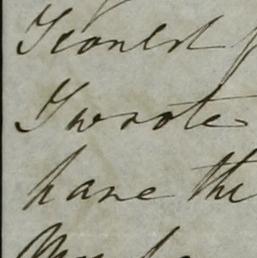 I could
I wrote
have the